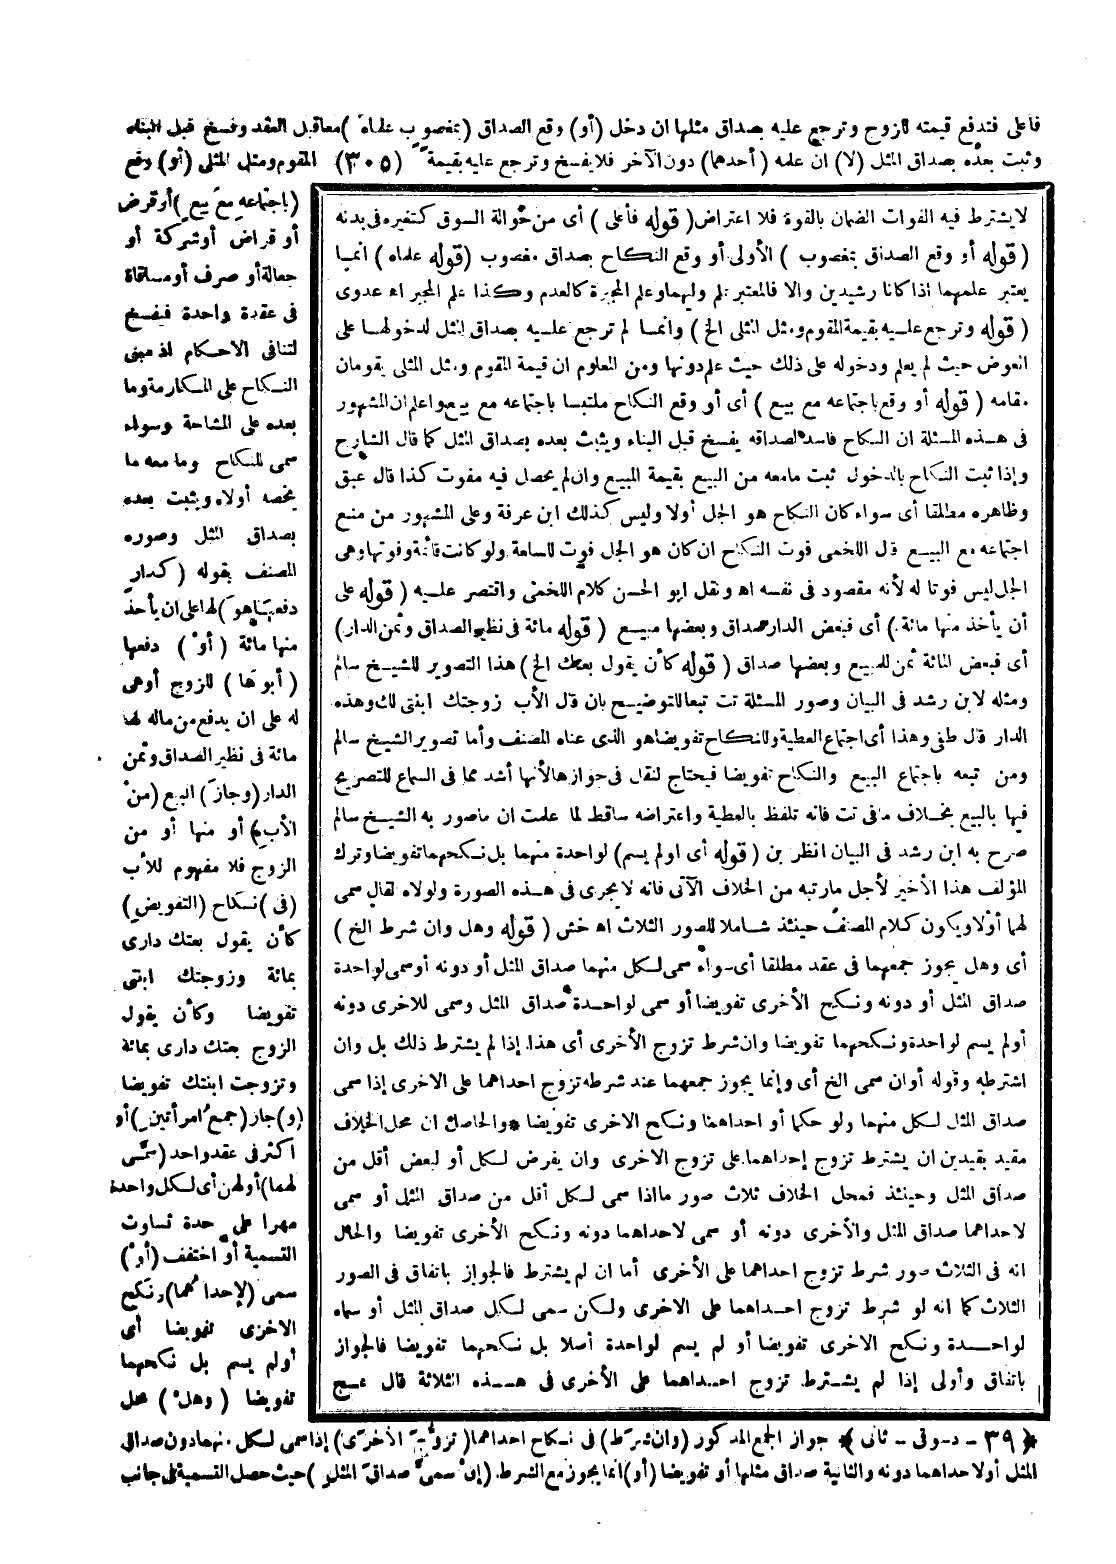 فأعلى فتدفع قيمته للزوج وترجع عليه بصداق مثلها ان دخل (أو) وقع الصداق (بمغصوب علماه) معا قبل العقد وفسخ قبل البناء
وثبت بعده بصداق المثل (لا) ان علمه (أحدهما) دون الآخر فلا يفسخ وترجع عليه بقيمة (٣٠٥) المقوم ومثل المثلى (أو) وقع
(باجتماعه مع بيع) أو قرض
أو قراض أو شركة أو
جعالة أو صرف أو مساقاة
فى عقدة واحدة فيفسخ
لتنافى الاحكام اذ مبنى
النكاح على المكارمة وما
بعده على المشاحة وسواء
سمى للنكاح وما معه ما
يخصه أولا ويثبت بعده
بصداق المثل وصوره
المصنف بقوله (كدار
دفعها هو) لها على ان يأخذ
منها مائة (أو) دفعها
(أبوها) للزوج أو هى
له على ان يدفع من ماله لها
مائة فى نظير الصداق وثمن
الدار (وجاز) البيع (من
الأب) أو منها أو من
الزوج فلا مفهوم للأب
(فى) نكاح (التفويض)
كأن يقول بعتك دارى
بمائة وزوجتك ابنتى
تفويضا وكأن يقول
الزوج بعتك دارى بمائة
وتزوجت ابنتك تفويضا
(و) جاز (جمع امرأتين) أو
اكثر فى عقد واحد (سمى
لهما) أو لهن أى لكل واحدة
مهرا على حدة تساوت
التسمية أو اختلف (أو)
سمى (لإحداهما) ونكح
الاخرى تفويضا أى
أو لم يسم بل نكحهما
تفويضا (وهل) محل
لا يشترط فيه الفوات الضمان بالقوة فلا اعتراض (قوله فأعلى) أى من حوالة السوق كتغيره فى بدنه
(قوله أو وقع الصداق بمغصوب) الأولى أو وقع النكاح بصداق مغصوب (قوله علماه) انما
يعتبر علمهما اذا كانا رشيدين والا فالمعتبر علم وليهما وعلم المجبرة كالعدم وكذا علم المجبر اه عدوى
(قوله وترجع عليه بقيمة المقوم ومثل المثلى الخ) وانما لم ترجع عليه بصداق المثل لدخولهما على
العوض حيث لم يعلم ودخوله على ذلك حيث علم دونها ومن المعلوم ان قيمة المقوم ومثل المثلى يقومان
مقامه (قوله أو وقع باجتماعه مع بيع) أى أو وقع النكاح ملتبسا باجتماعه مع بيع واعلم ان المشهور
فى هذه المسئلة ان النكاح فاسد لصداقه يفسخ قبل البناء ويثبت بعده بصداق المثل كما قال الشارح
وإذا ثبت النكاح بالدخول ثبت مامعه من البيع بقيمة المبيع وان لم يحصل فيه مفوت كذا قال عبق
وظاهره مطلقا أى سواء كان النكاح هو الجل أولا وليس كذلك ابن عرفة وعلى المشهور من منع
اجتماعه مع البيع قال اللخمى فوت النكاح ان كان هو الجل فوت للسلعة ولو كانت قائمة وفوتها وهى
الجل ليس فوتا له لأنه مقصود فى نفسه اه ونقل ابو الحسن كلام اللخمى واقتصر عليه (قوله على
أن يأخذ منها مائة) أى فبعض الدار صداق وبعضها مبيع (قوله مائة فى نظير الصداق وثمن الدار)
أى فبعض المائة ثمن للمبيع وبعضها صداق (قوله كأن يقول بعتك الخ) هذا التصوير للشيخ سالم
ومثله لابن رشد فى البيان وصور المسئلة تت تبعا للتوضيح بان قال الأب زوجتك ابنتى لك وهذه
الدار قال طفى وهذا أى اجتماع العطية والنكاح تفويضا هو الذى عناه المصنف وأما تصوير الشيخ سالم
ومن تبعه باجتماع البيع والنكاح تفويضا فيحتاج لنقل فى جوازها لأنها أشد مما فى السماع للتصريح
فيها بالبيع بخلاف ما فى تت فانه تلفظ بالعطية واعتراضه ساقط لما علمت ان ماصور به الشيخ سالم
صرح به ابن رشد فى البيان انظر بن (قوله أى اولم يسم) لواحدة منهما بل نكحهما تفويضا وترك
المؤلف هذا الأخير لأجل مارتبه من الخلاف الآتى فانه لا يجرى فى هذه الصورة ولولاه لقال سمى
لهما أولا ويكون كلام المصنف حينئذ شاملا للصور الثلاث اه خش (قوله وهل وان شرط الخ)
أى وهل يجوز جمعهما فى عقد مطلقا أى سواء سمى لكل منهما صداق المثل أو دونه أو سمى لواحدة
صداق المثل أو دونه ونكح الأخرى تفويضا أو سمى لواحدة صداق المثل وسمى للاخرى دونه
أو لم يسم لواحدة ونكحهما تفويضا وان شرط تزوج الأخرى أى هذا إذا لم يشترط ذلك بل وان
اشترطه وقوله أو ان سمى الخ أى وإنما يجوز جمعهما عند شرطه تزوج احداهما على الاخرى إذا سمى
صداق المثل لكل منهما ولو حكما أو احداهما ونكح الاخرى تفويضا * والحاصل ان محل الخلاف
مقيد بقيدين ان يشترط تزوج إحداهما على تزوج الاخرى وان يفرض لكل أو لبعض أقل من
صداق المثل وحينئذ فمحل الخلاف ثلاث صور ما اذا سمى لكل أقل من صداق المثل أو سمى
لاحداهما صداق المثل والأخرى دونه أو سمى لاحداهما دونه ونكح الأخرى تفويضا والحال
انه فى الثلاث صور شرط تزوج احداهما على الأخرى أما ان لم يشترط فالجواز باتفاق فى الصور
الثلاث كما انه لو شرط تزوج احداهما على الاخرى ولكن سمى لكل صداق المثل أو سماه
لواحدة ونكح الاخرى تفويضا أو لم يسم لواحدة أصلا بل نكحهما تفويضا فالجواز
باتفاق وأولى إذا لم يشترط تزوج احداهما على الأخرى فى هذه الثلاثة قال عج
﴿٣٩ - دسوقى - ثانى﴾ جواز الجمع المذكور (وان شرط) فى نكاح احداهما (تزوج الأخرى) إذا سمى لكل منهما دون صداق
المثل أو لاحداهما دونه والثانية صداق مثلها أو تفويضا (أو) انما يجوز مع الشرط (إن سمى صداق المثل) حيث حصل التسمية فى جانب